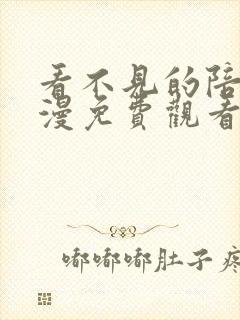 看不見的陪
漫免費觀看
嘟嘟嘟肚子疼